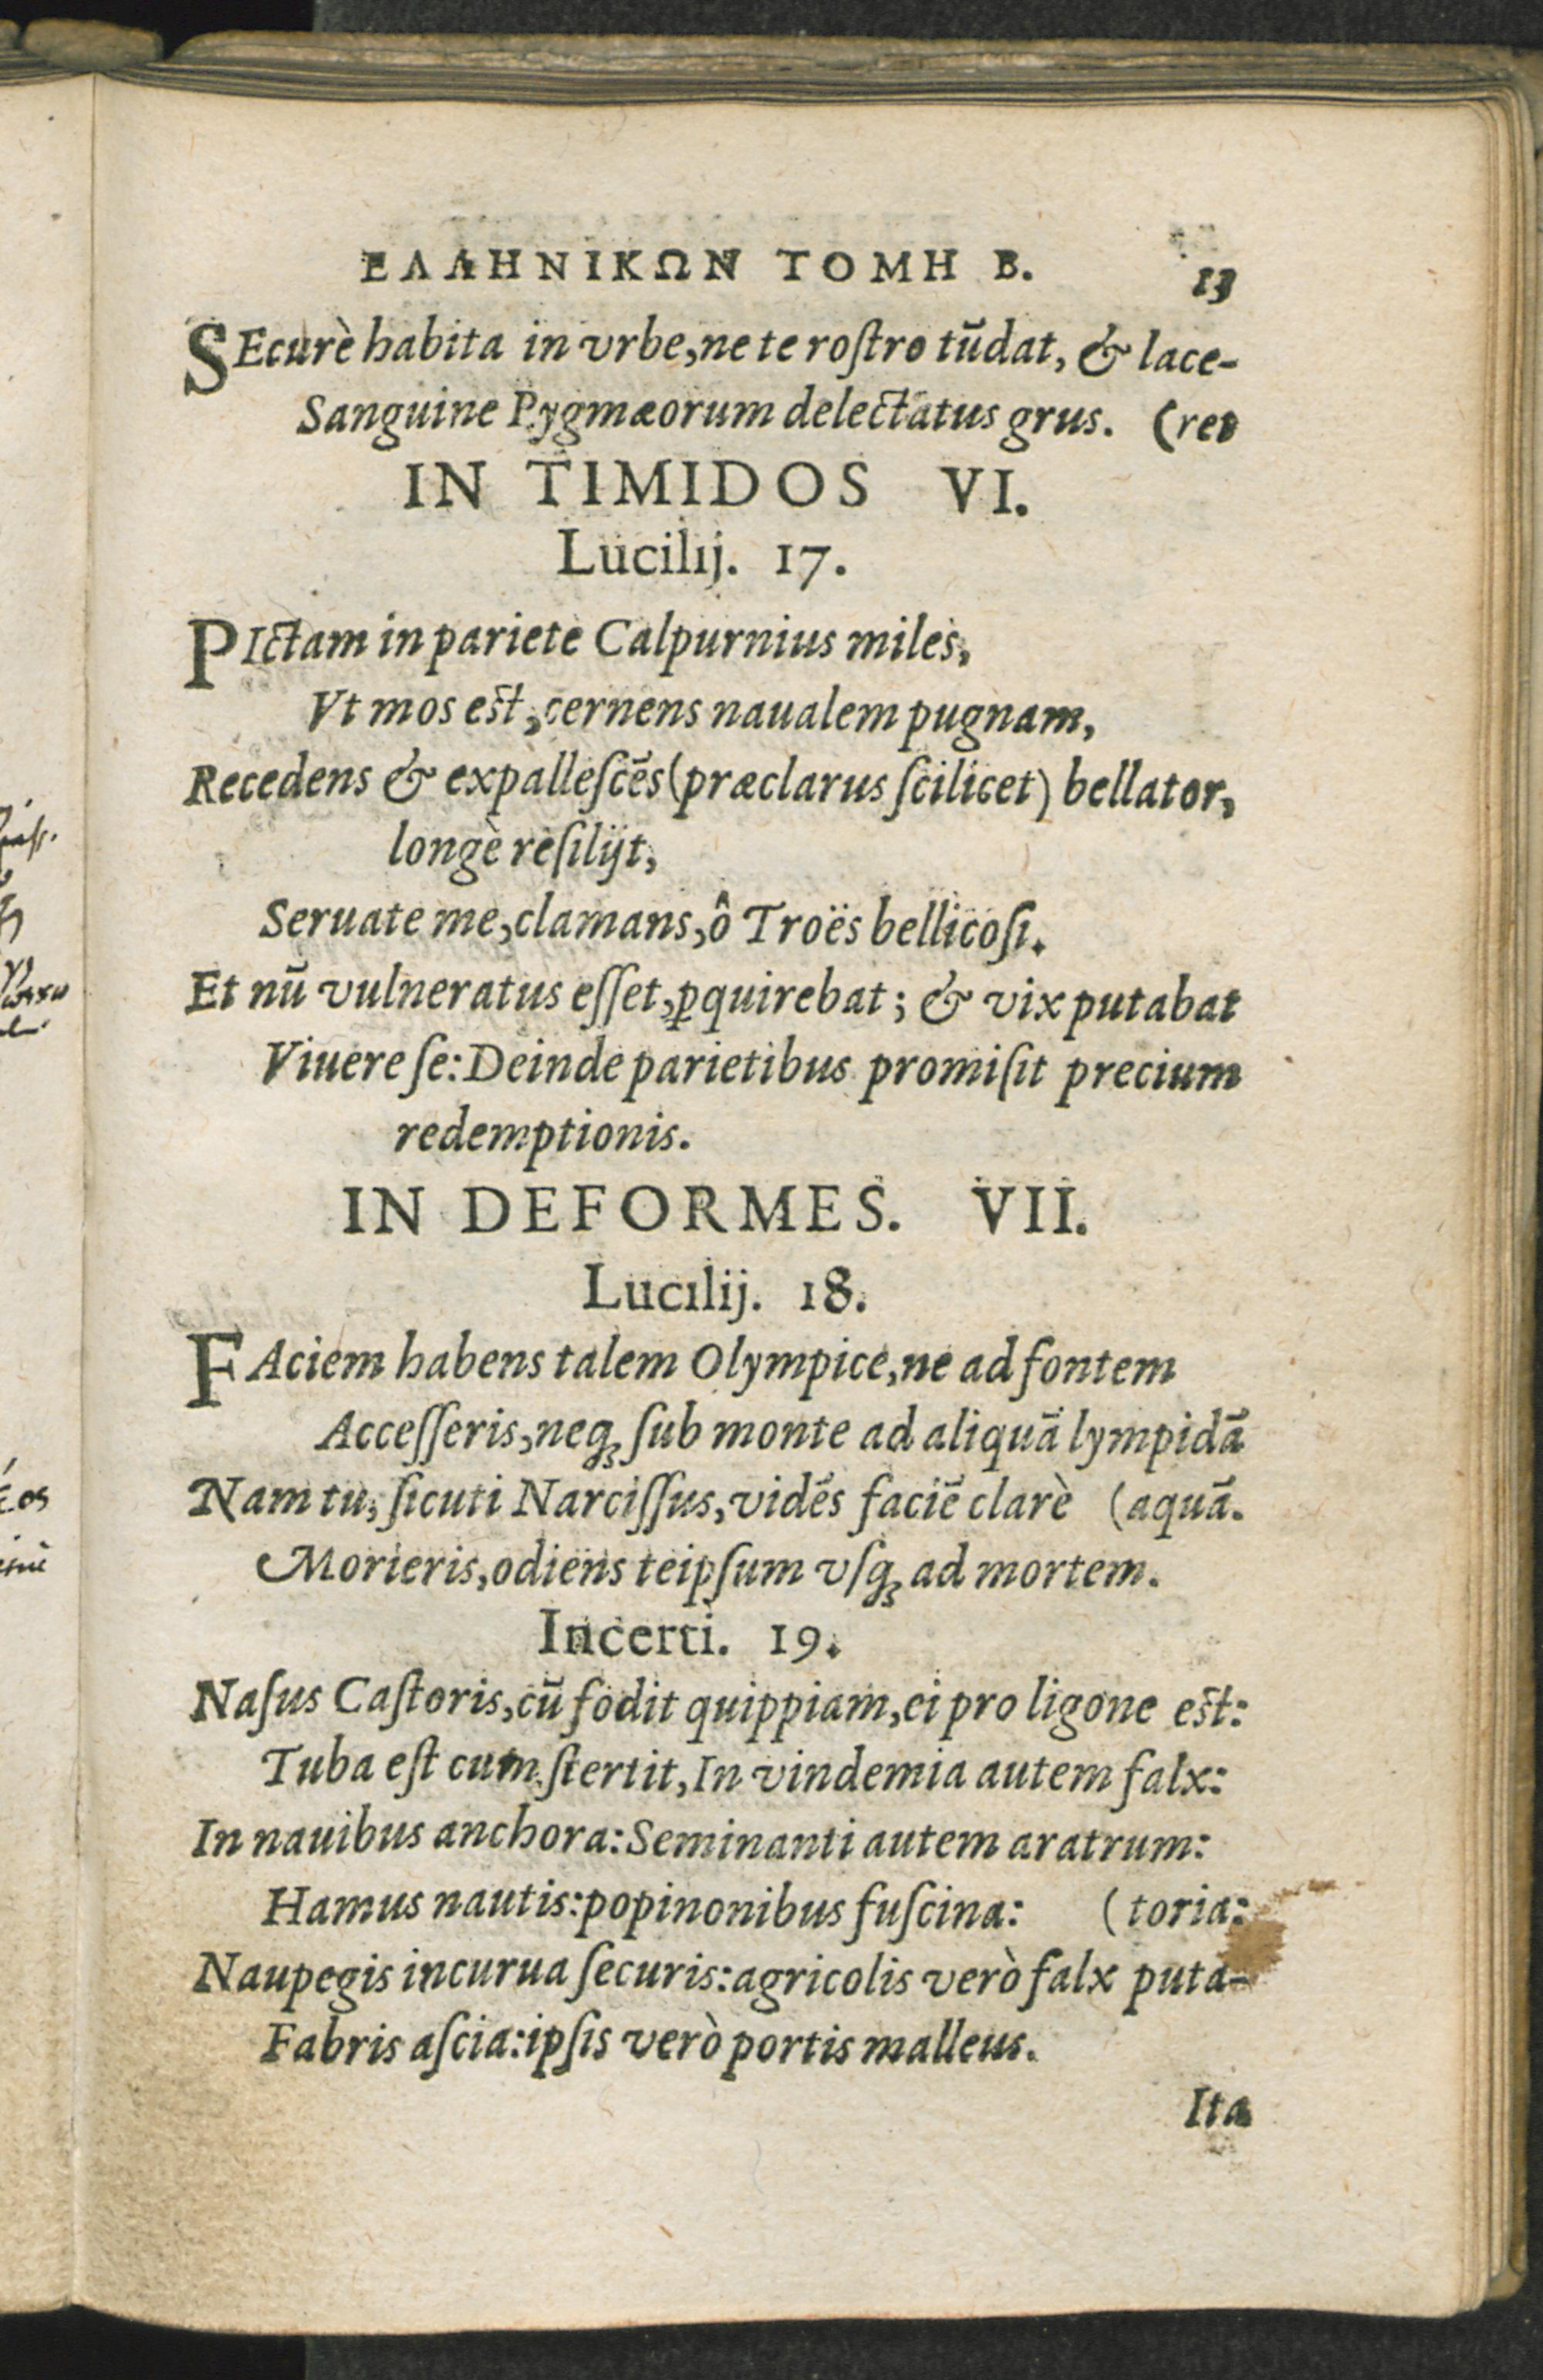 ΕΛΛΗΝΙΚΩΝ ΤΟΜΗ Β. 13
SEcurè habita in vrbe, ne te roſtro tūdat, & lace-
Sanguine Pygmæorum delectatus grus. (ret
IN TIMIDOS VI.
Lucilij. 17.
PIctam in pariete Calpurnius miles,
Vt mos est, cernens naualem pugnam,
Recedens & expalleſcēs (præclarus ſcilicet) bellator,
longè reſilijt,
Seruate me, clamans, ô Troës bellicoſi.
Et nū vulneratus eſſet, ꝑquirebat; & vix putabat
Viuere ſe: Deinde parietibus promiſit precium
redemptionis.
IN DEFORMES. VII.
Lucilij. 18.
FAciem habens talem Olympice, ne ad fontem
Acceſſeris, neq; ſub monte ad aliquā lympidā
Nam tu, ſicuti Narciſſus, vidēs faciē clarè (aquā.
Morieris, odiens teipſum vſq; ad mortem.
Incerti. 19.
Naſus Caſtoris, cū fodit quippiam, ei pro ligone est:
Tuba eſt cum ſtertit, In vindemia autem falx:
In nauibus anchora: Seminanti autem aratrum:
Hamus nautis: popinonibus fuſcina: (toria:
Naupegis incurua ſecuris: agricolis verò falx puta-
Fabris aſcia: ipſis verò portis malleus.
Ita